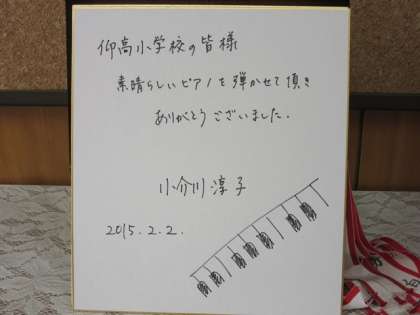 仰高小学校の皆様
素晴らしいピアノを弾かせて頂き
ありがとうございました.
小介川淳子
2015.2.2.